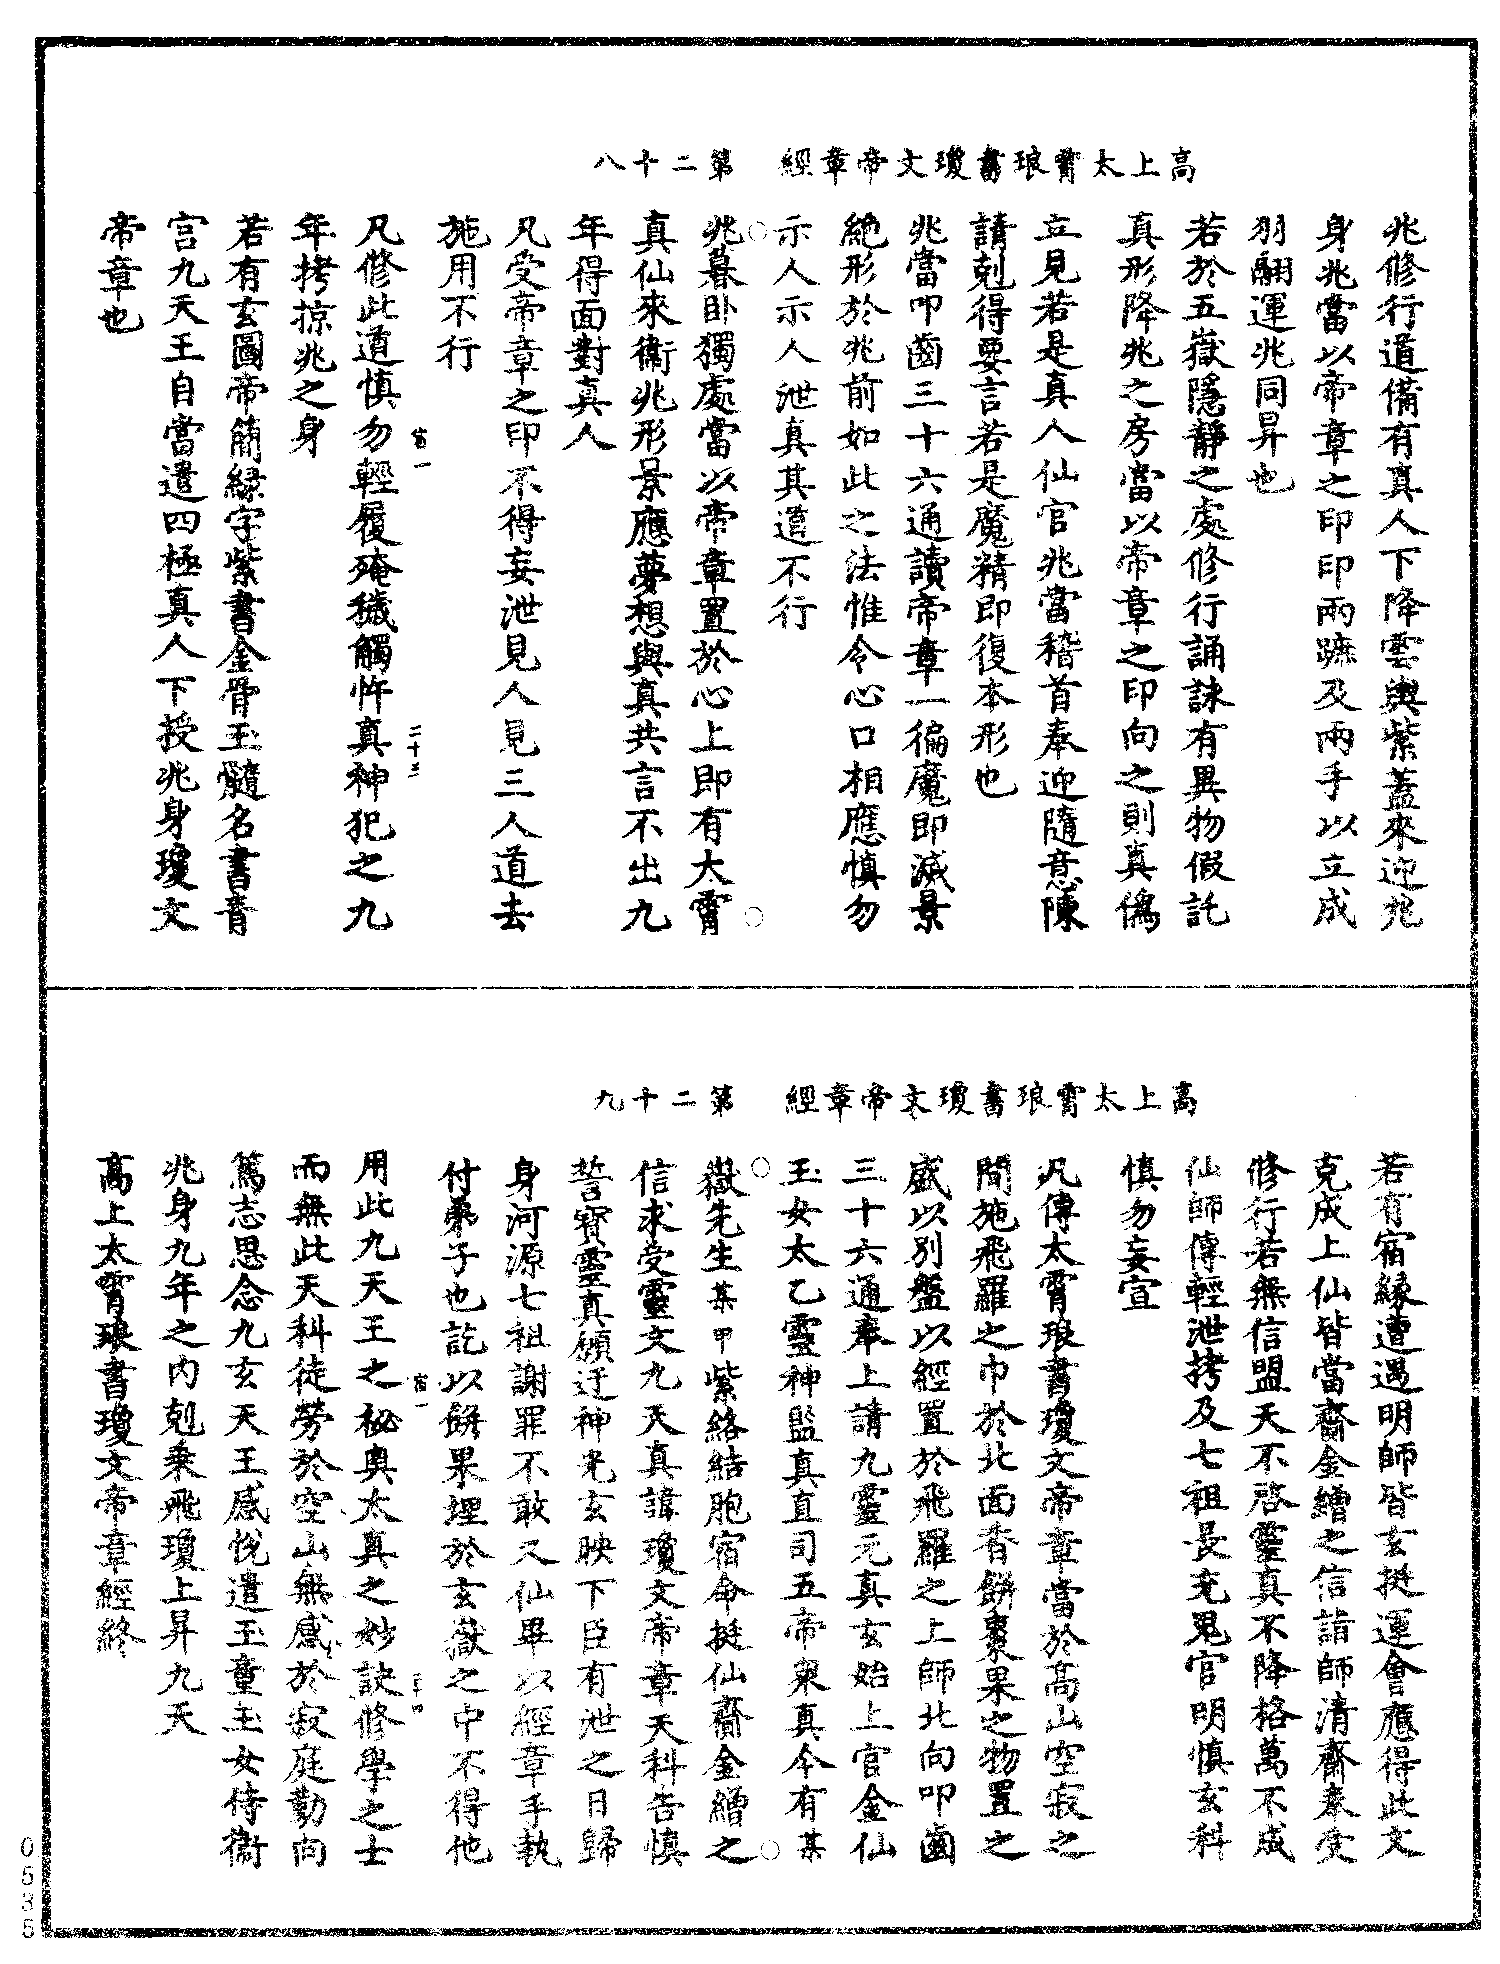 高上太霄琅書瓊文帝章經　第二十八
兆修行道備有真人下降雲輿紫蓋來迎兆
身兆當以帝章之印印兩蹠及兩手以立成
羽翮運兆同昇也
若於五嶽隱靜之處修行誦詠有異物假託
真形降兆之房當以帝章之印向之則真僞
立見若是真人仙官兆當稽首奉迎隨意陳
請剋得要言若是魔精即復本形也
兆當叩齒三十六通讀帝章一徧魔即滅景
絕形於兆前如此之法惟令心口相應慎勿
示人示人泄真其道不行
兆暮卧獨處當以帝章置於心上即有太霄
真仙來衞兆形景應夢想與真共言不出九
年得面對真人
凡受帝章之印不得妄泄見人見三人道去
施用不行
宿一
二十三
凡修此道慎勿輕履殗穢觸忤真神犯之九
年拷掠兆之身
若有玄圖帝簡綠字紫書金骨玉髓名書青
宮九天王自當遣四極真人下授兆身瓊文
帝章也
高上太霄琅書瓊文帝章經　第二十九
若有宿緣遭遇明師皆玄挺運會應得此文
克成上仙皆當齋金繒之信詣師清齋奉受
修行若無信盟天不啓靈真不降格萬不成
仙師傳輕泄拷及七祖長充鬼官明慎玄科
慎勿妄宣
凡傳太霄琅書瓊文帝章當於高山空寂之
間施飛羅之巾於北面香餅棗果之物置之
盛以別盤以經置於飛羅之上師北向叩齒
三十六通奉上請九靈元真玄始上宮金仙
玉女太乙靈神監真直司五帝衆真今有某
嶽先生某甲紫絡結胞宿命挺仙齋金繒之
信求受靈文九天真諱瓊文帝章天科告慎
誓寶靈真願迂神光玄映下臣有泄之日歸
身河源七祖謝罪不敢又仙畢以經章手執
付弟子也訖以餅果埋於玄嶽之中不得他
宿一
二十四
用此九天王之祕奧太真之妙訣修學之士
而無此天科徒勞於空山無感於寂庭勤向
篤志思念九玄天王感悅遣玉童玉女侍衞
兆身九年之內剋乘飛瓊上昇九天
高上太霄琅書瓊文帝章經終